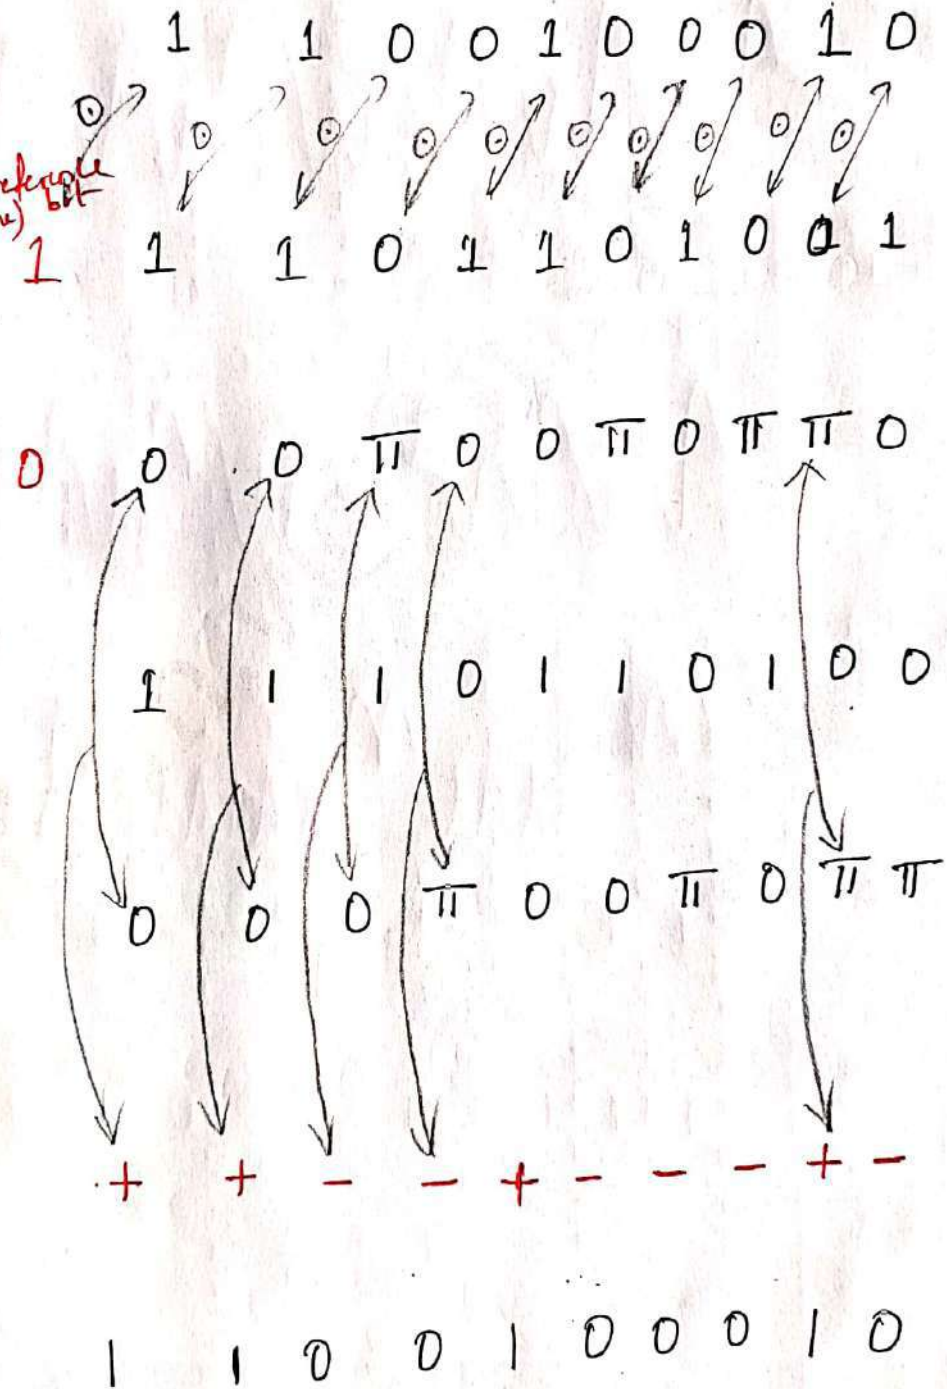 1 1 0 0 1 0 0 0 1 0
⊙ ⊙ ⊙ ⊙ ⊙ ⊙ ⊙ ⊙ ⊙ ⊙
bit
1 1 1 0 1 1 0 1 0 1
0 0 0 π 0 0 π 0 π π 0
1 1 1 0 1 1 0 1 0 0
0 0 0 π 0 0 π 0 π π
+ + - - + - - - + -
1 1 0 0 1 0 0 0 1 0